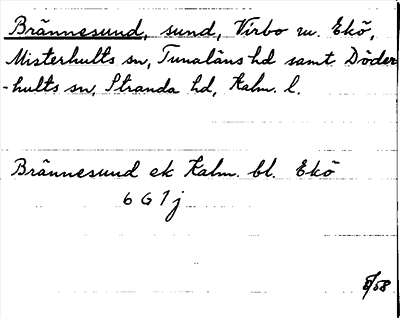 Brännesund, sund, Virbo m. Ekö,
Misterhults sn, Tunaläns hd samt Döder
-hults sn, Stranda hd, Kalm. l.
Brännesund ek Kalm. bl. Ekö
6 G 1 j
/58